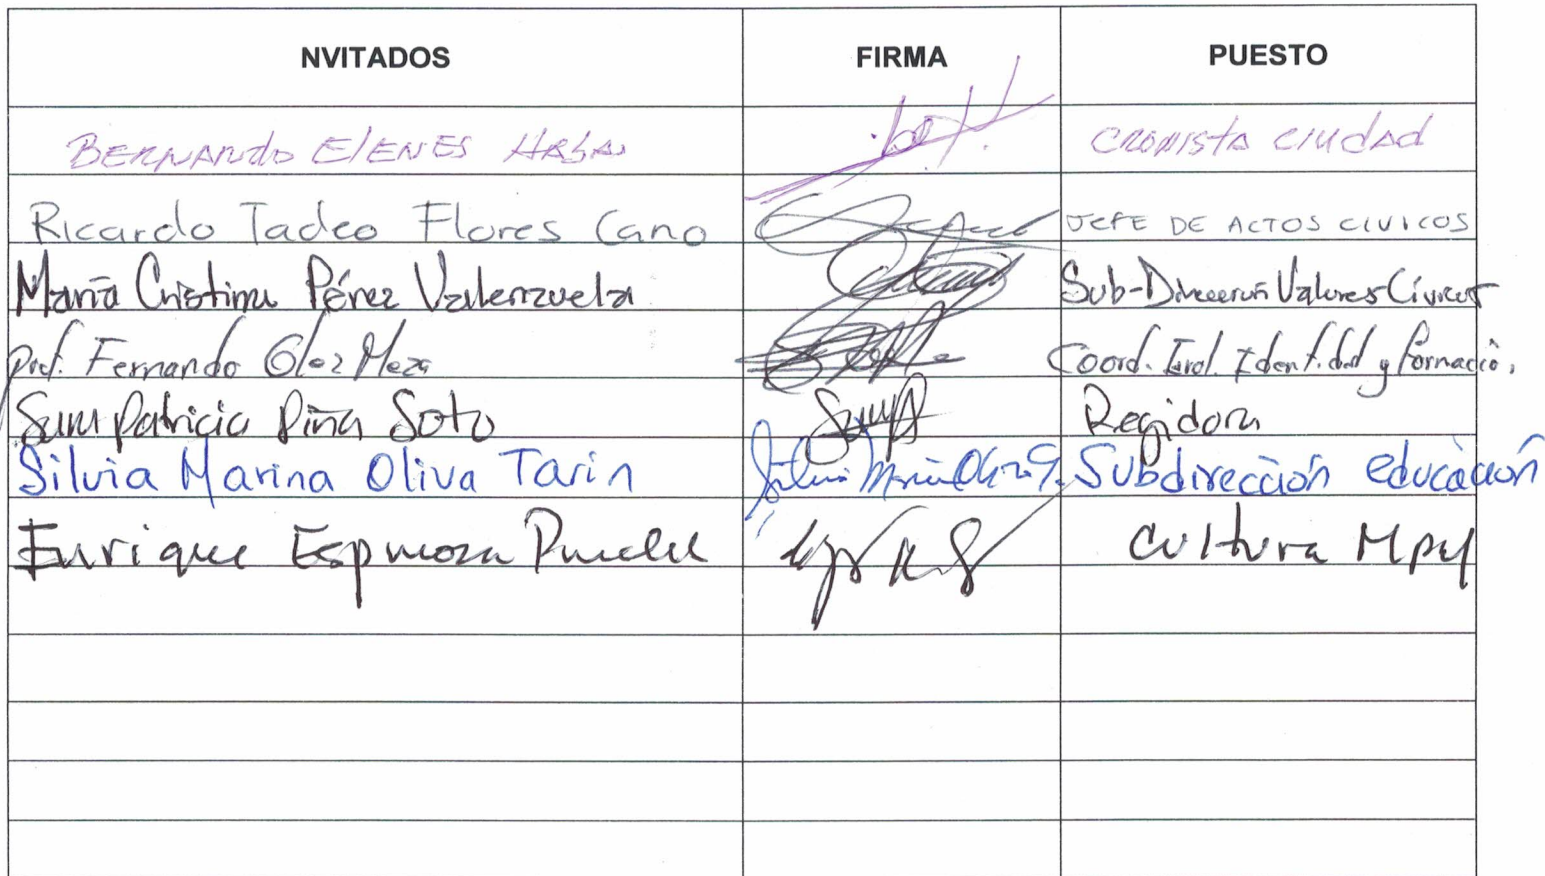 NVITADOS FIRMA PUESTO
BERNARDO ElENES HABAS CRONISTA CIUDAD
Ricardo Tadeo Flores Cano JEFE DE ACTOS CIVICOS
María Cristina Pérez Valenzuela Sub-Dirección Valores Cívicos
Prof. Fernando Glez Meza Coord. Identidad y formación
Patricia Piña Soto Regidora
Silvia Marina Oliva Tarin Subdirección educación
Enrique Espinoza Cultura Mpal